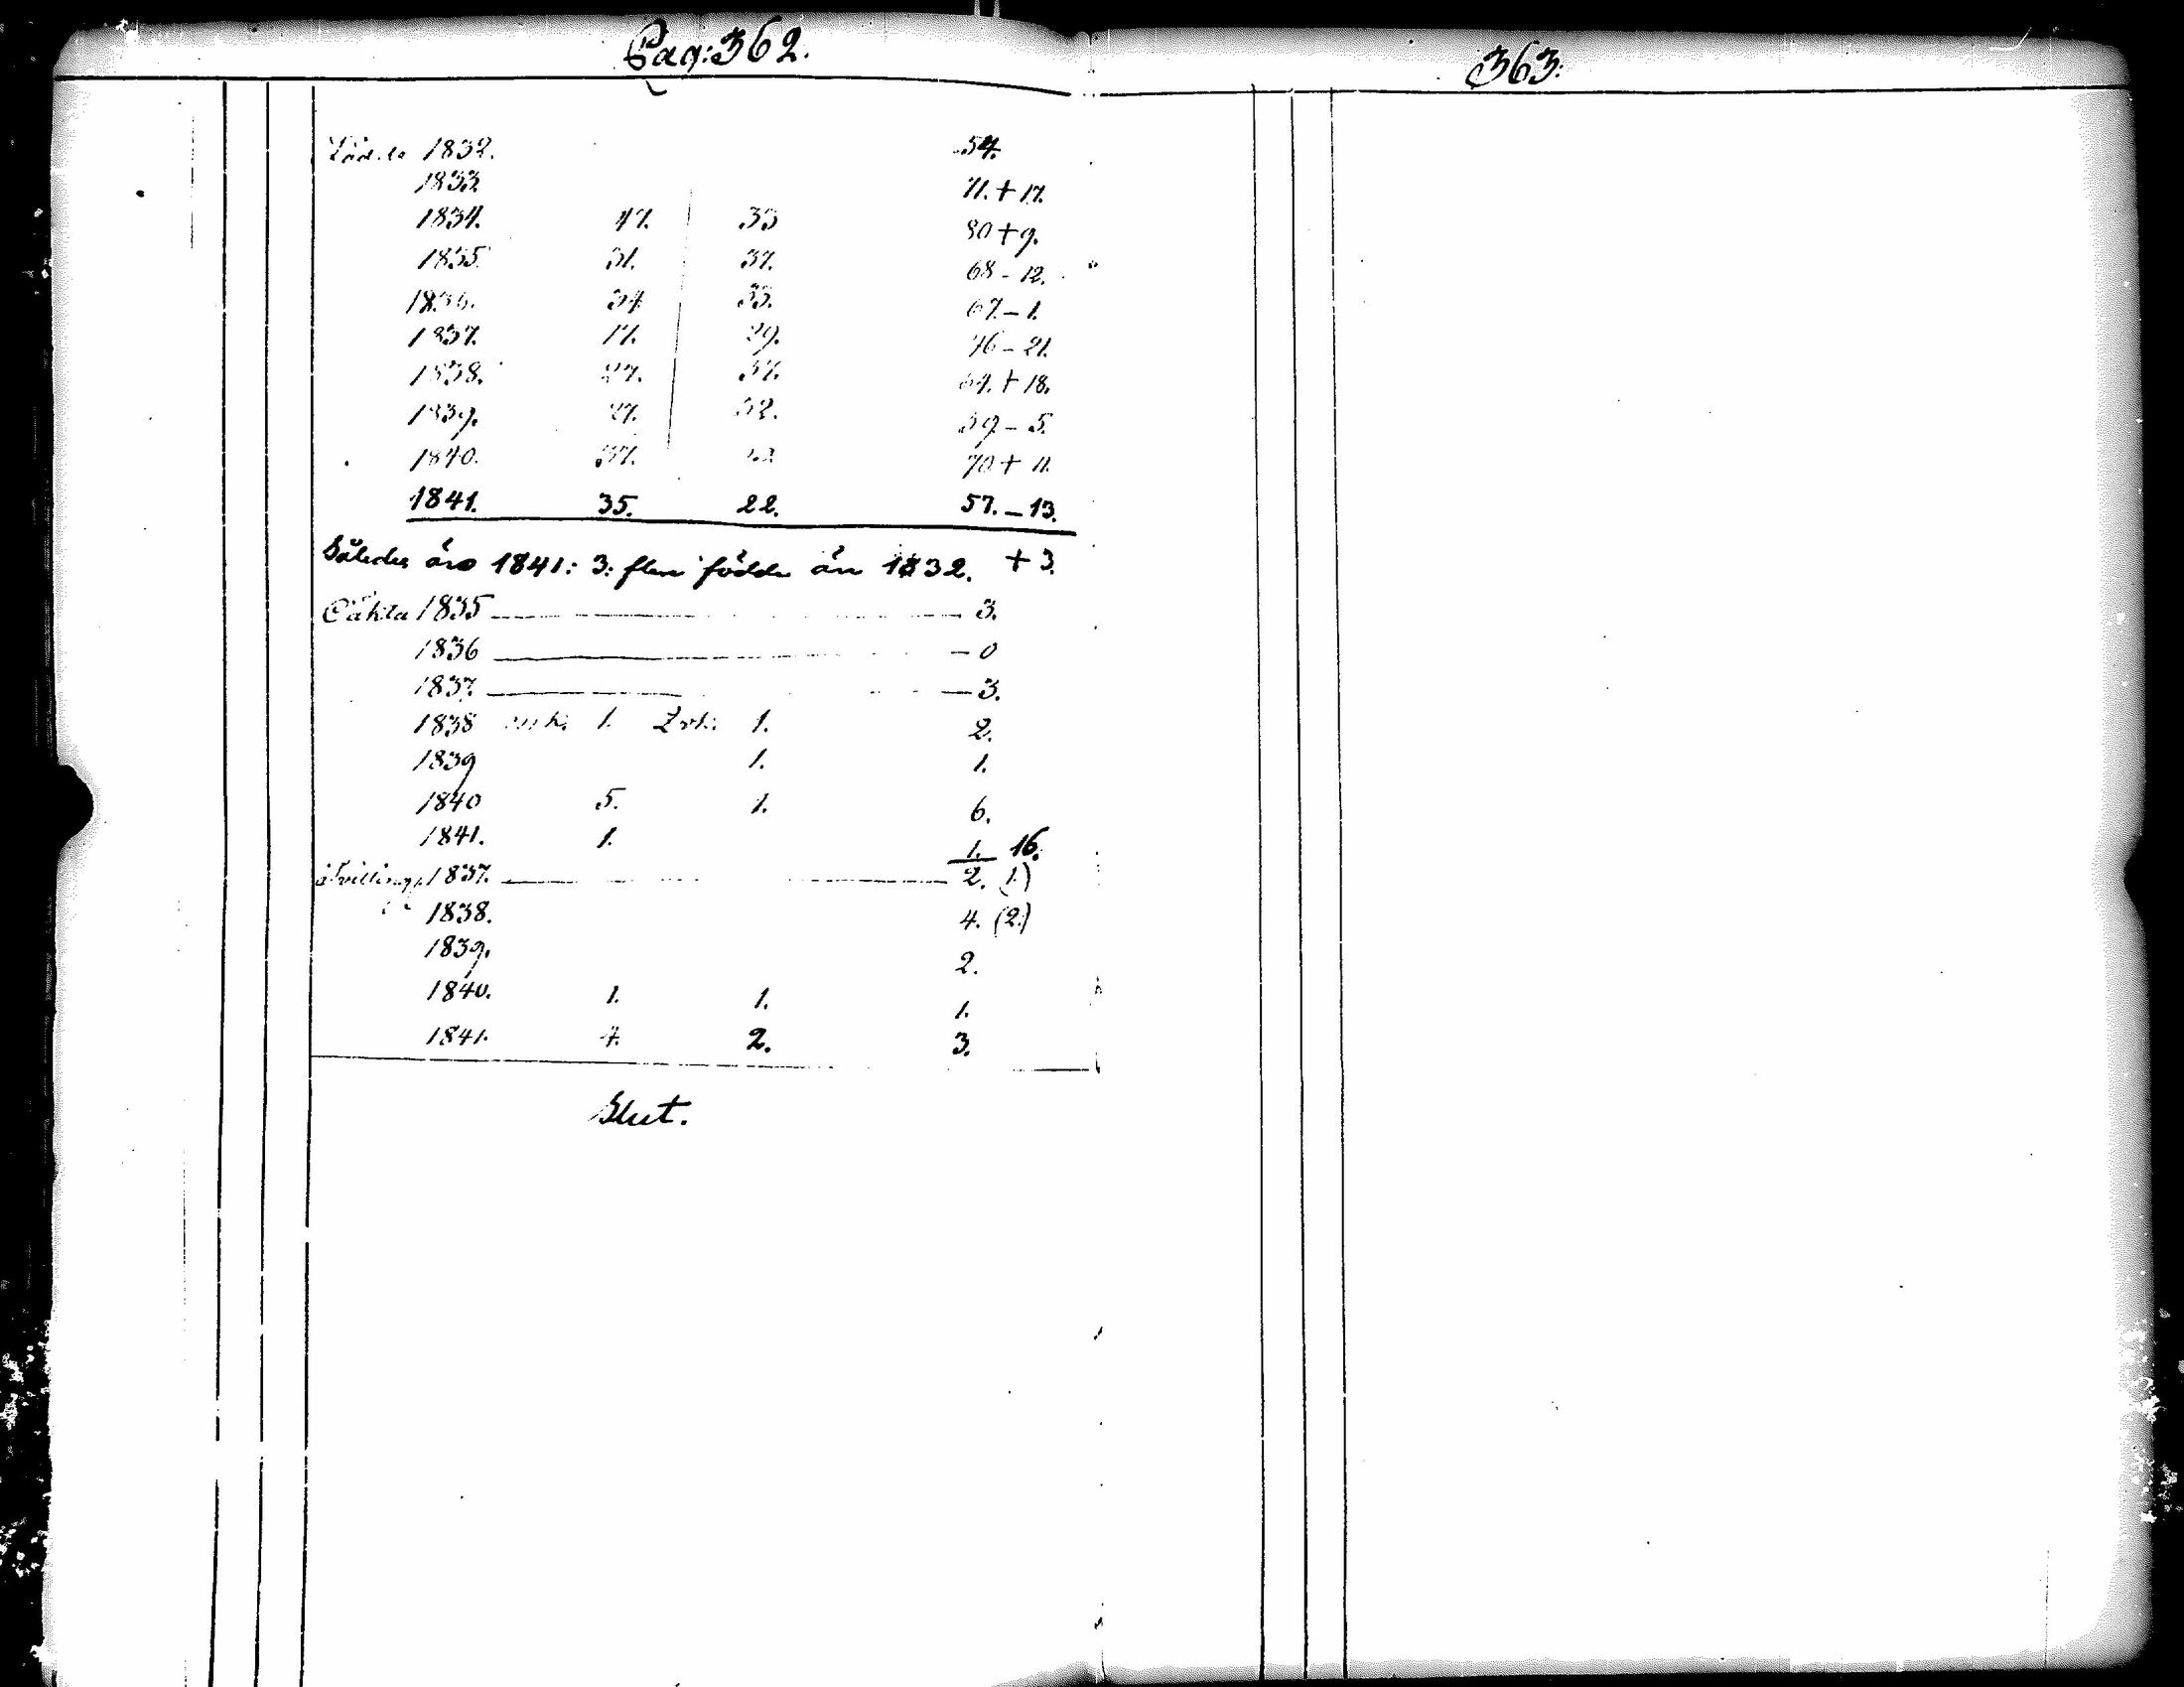 Pag: 362.
Födde 1832. 54.
1833. 71. + 17.
1834. 47. 33 80 + 9.
1835. 31. 37. 68 - 12.
1836. 34 33. 67. - 1.
1837. 17. 29. 46 - 21.
1838. 27. 37. 64. + 18.
1839. 27. 32. 59 - 5.
1840. 37. 70 + 11.
1841. 35. 22. 57. - 13.
Således års 1841: 3: flere födde än 1832. + 3.
Oäkta 1835 3.
1836 - 0
1837. 3.
1838 mk: 1. Qvk: 1. 2.
1839 1. 1.
1840 5. 1. 6.
1841. 1. 1. 16.
Tvilling 1837. 2. (1.)
1838. 4. (2.)
1839. 2.
1840. 1. 1. 1.
1841. 4. 2. 3.
Slut.
363.